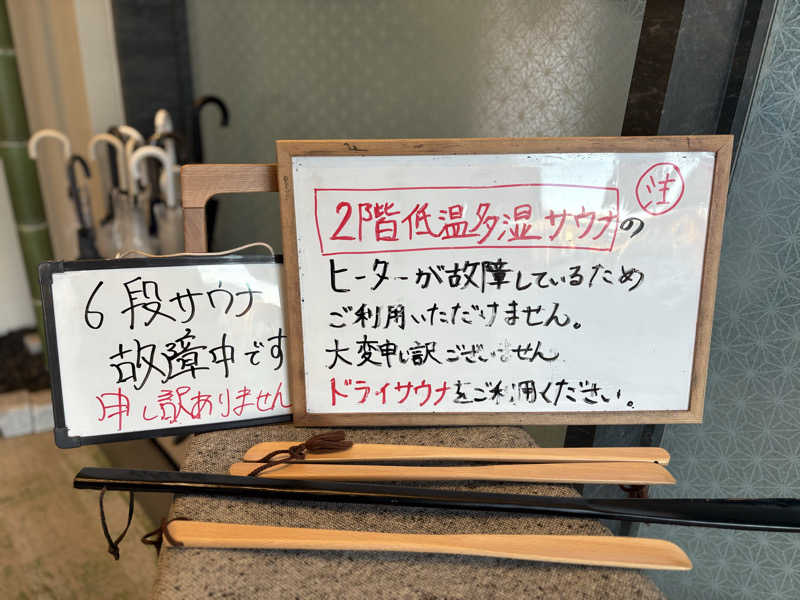 6段サウナ
故障中です
申し訳ありません
注
2階低温多湿サウナの
ヒーターが故障しているため
ご利用いただけません。
大変申し訳ございません
ドライサウナをご利用ください。